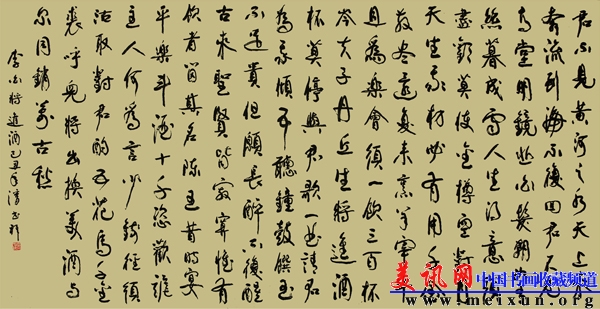 君不見黃河之水天上来
奔流到海不復回君不見
高堂明鏡悲白髮朝
絲暮成雪人生得意須
盡歡莫使金樽空對月
天生我材必有用千金
散尽還復来烹羊宰牛
且為樂會須一飲三百杯
岑夫子丹丘生將進酒
杯莫停與君歌一曲請君
為我傾耳聽鐘鼓饌玉
不足貴但願長醉不復醒
古来聖賢皆寂寞惟有
飲者留其名陳王昔時宴
平樂斗酒十千恣歡謔
主人何為言少錢徑須
沽取對君酌五花馬千金
裘呼兒將出換美酒與
尔同銷萬古愁
李白將進酒己丑年
美讯网 中国书画收藏频道
www.imeixun.org